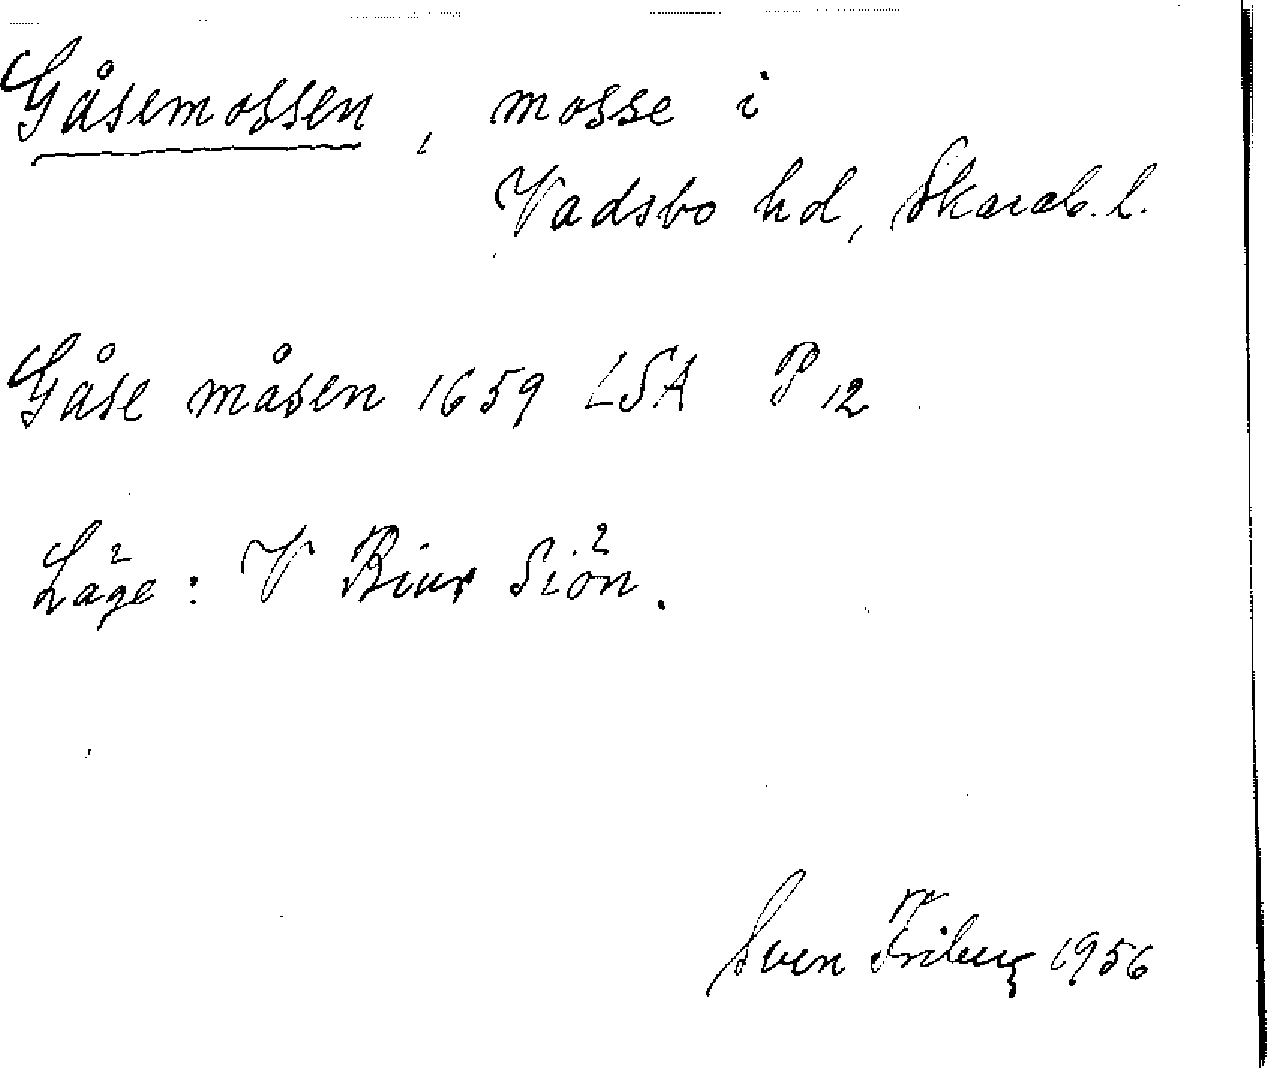 Gåsemossen, mosse i
Vadsbo hd, Skarab. l.
Gåse måsen 1659 LSA P 12
Läge: V Siön.
Sven Friberg 1956